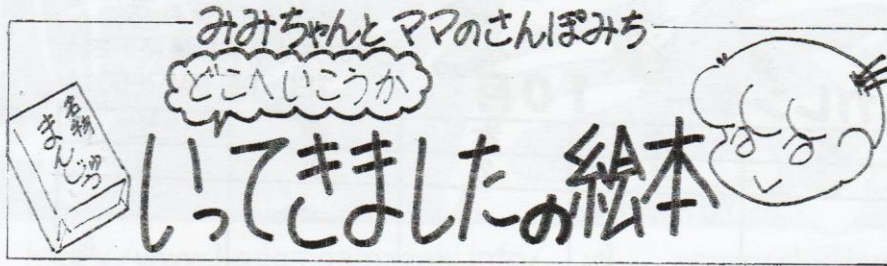 みみちゃんとママのさんぽみち
どこへいこうか
名物
まんじゅう
いってきましたの絵本